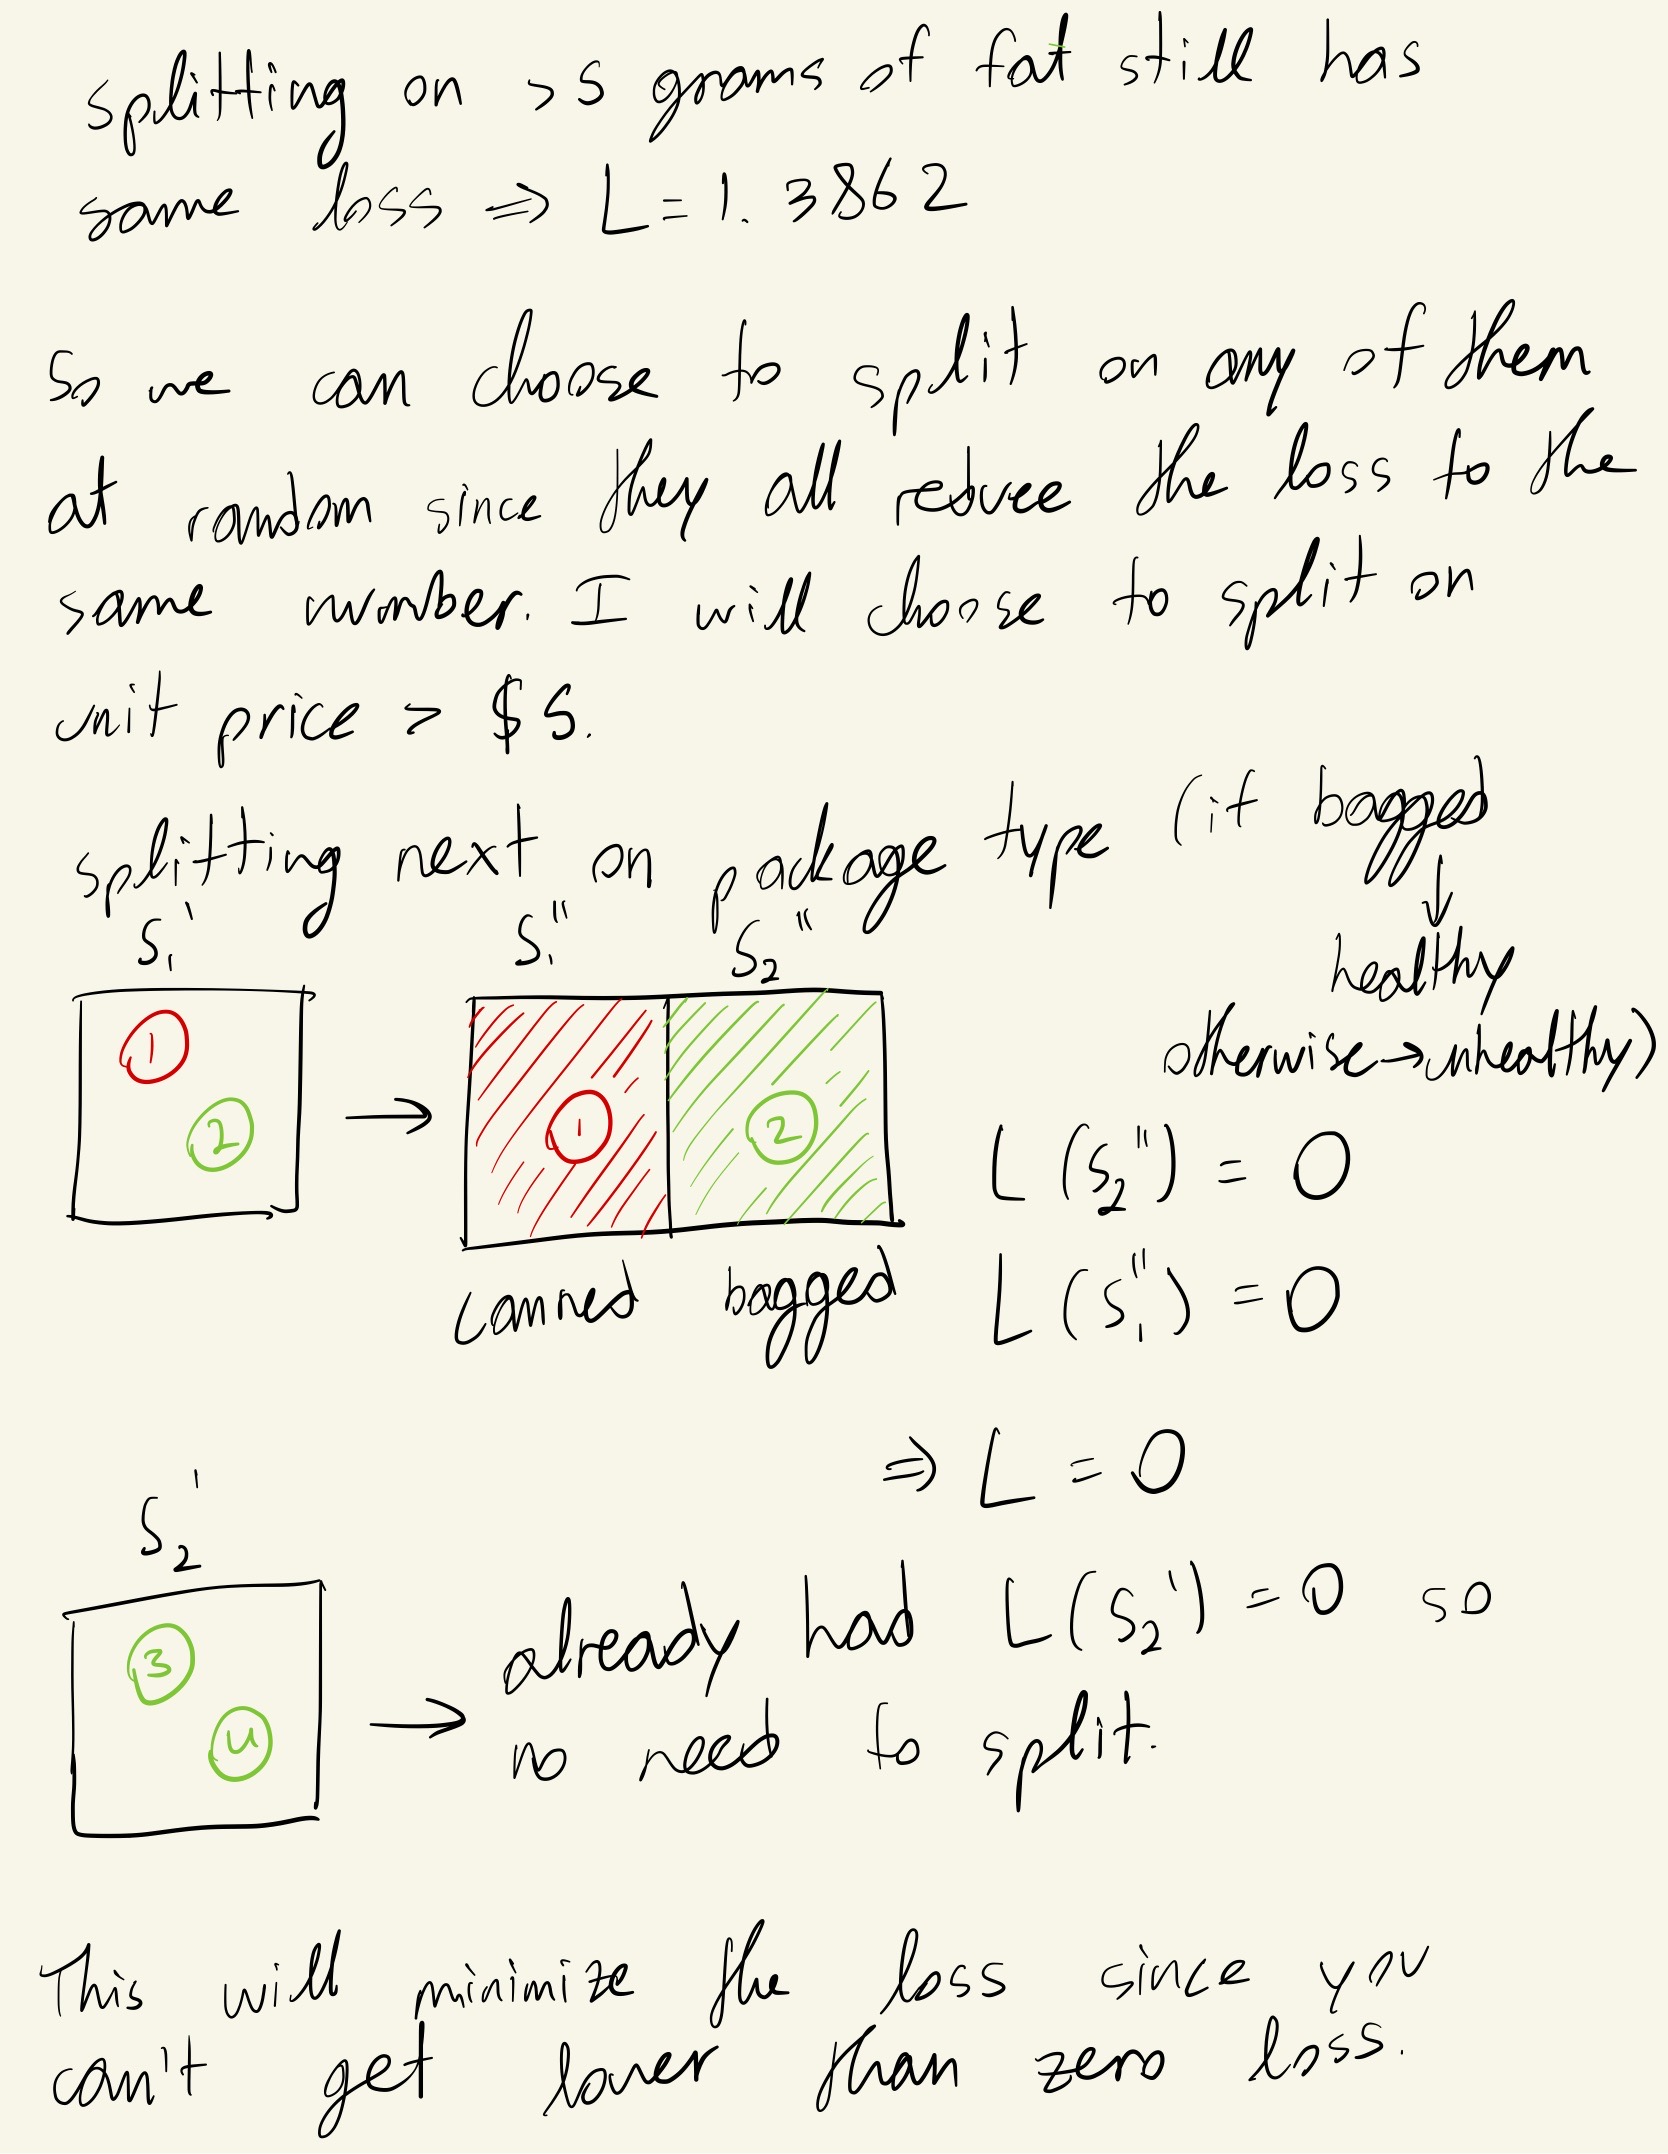 splitting on > 5 grams of fat still has
same loss ⇒ L = 1.3862
So we can choose to split on any of them
at random since they all reduce the loss to the
same number. I will choose to split on
unit price > $5.
splitting next on package type (if bagged
↓
healthy
otherwise → unhealthy)
S₁' S₁'' S₂''
1
2
→
1 2
canned bagged
L(S₂'') = 0
L(S₁'') = 0
⇒ L = 0
S₂'
3
4
→ already had L(S₂') = 0 so
no need to split.
This will minimize the loss since you
can't get lower than zero loss.